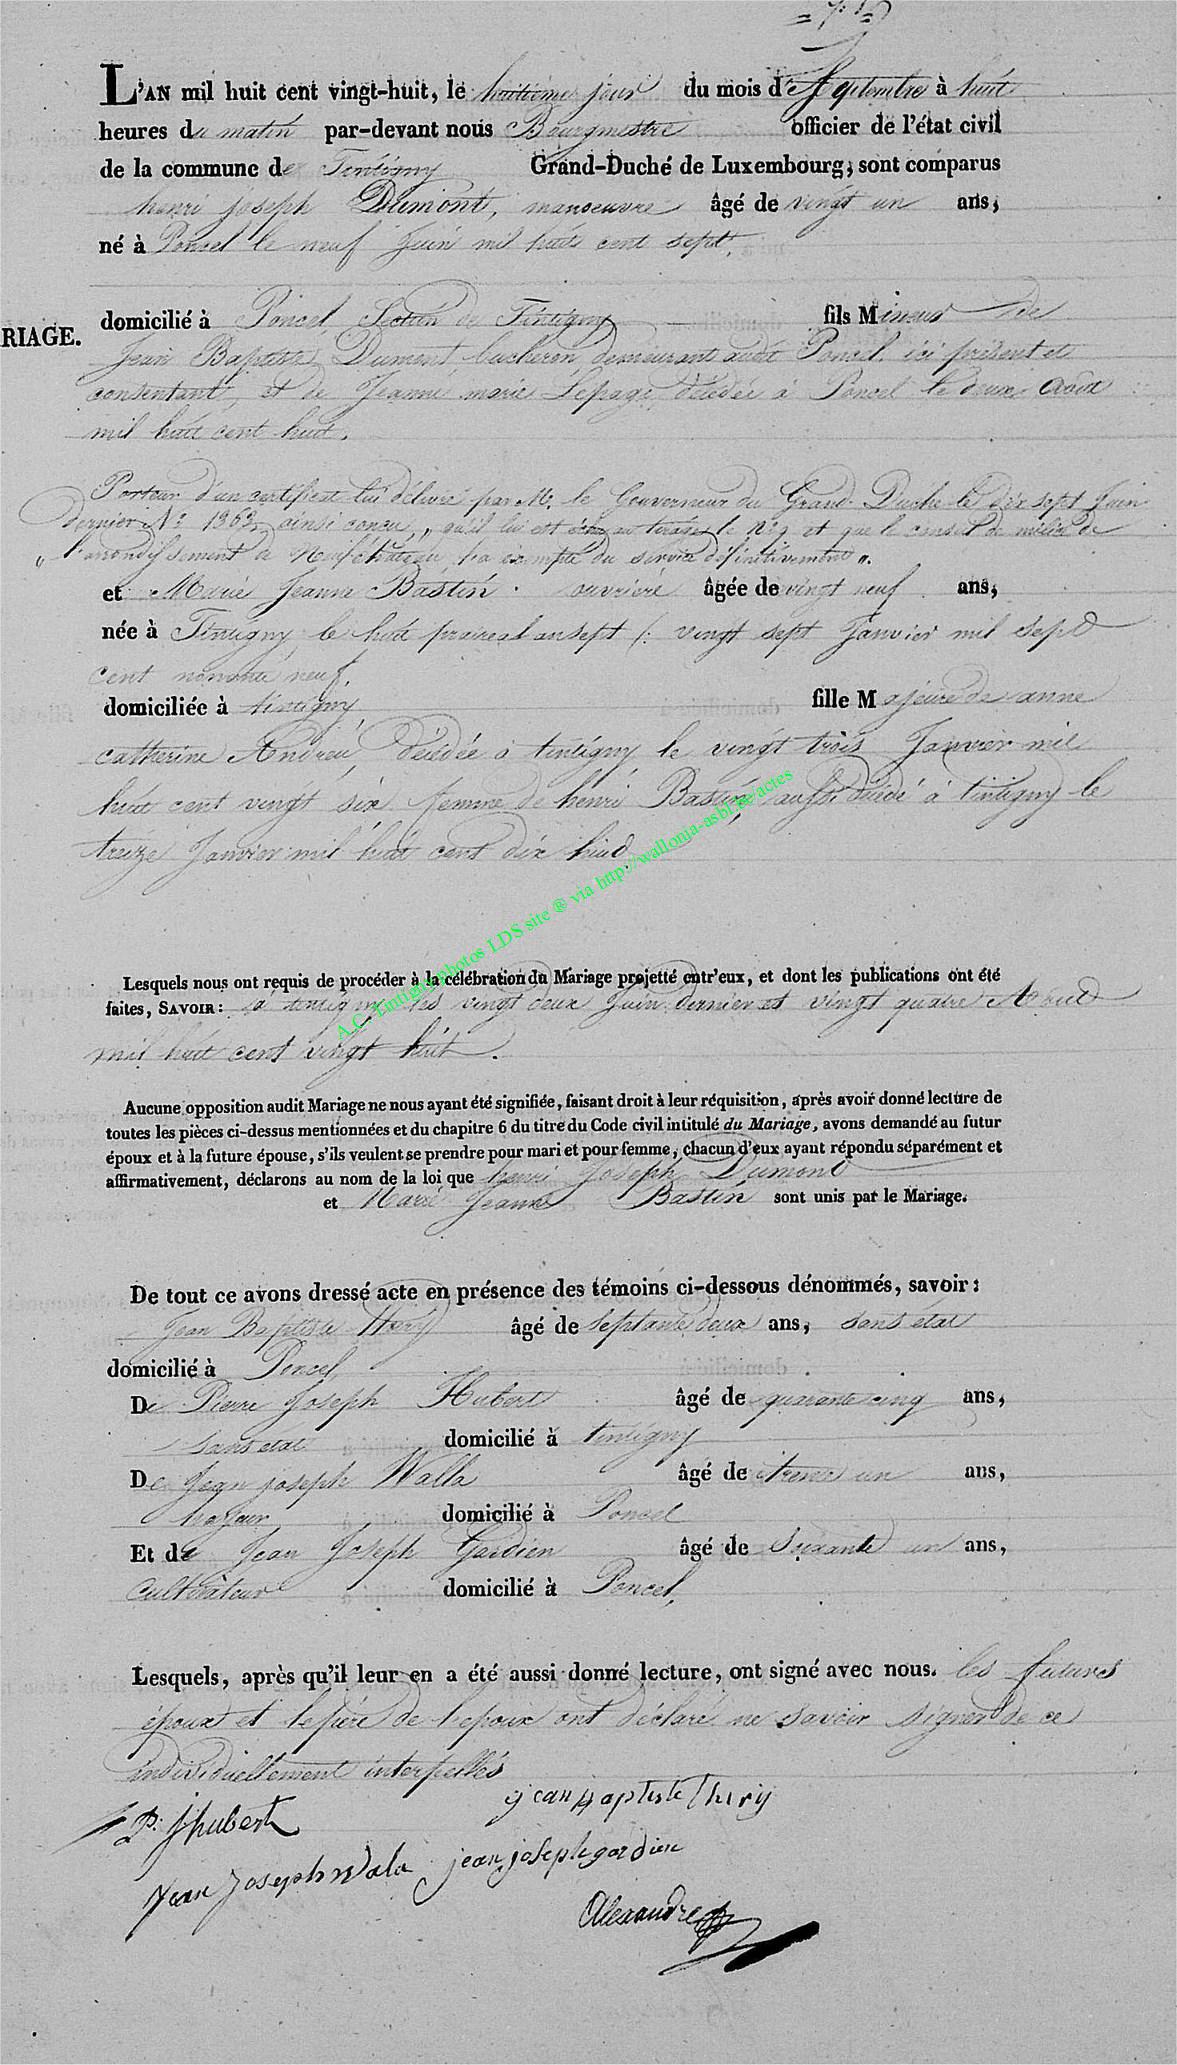 L'AN mil huit cent vingt-huit, le huitieme jour du mois de Septembre à huit
heures du matin par-devant nous Bourgmestre officier de l'état civil
de la commune de Tintigny Grand-Duché de Luxembourg, sont comparus
henri joseph Dumont, manoeuvre âgé de vingt un ans,
né à Poncel le neuf Juin mil huit cent sept,
RIAGE.
domicilié à Poncel, Section de Tintigny fils Mineur de
Jean Baptiste Dumont, bucheron, demeurant audit Poncel, ici présent et
consentant, et de Jeanne marie Lepage, décédée à Poncel le deux Août
mil huit cent huit.
Porteur d'un certificat lui délivré par Mr. le Gouverneur du Grand Duché le dix sept Juin
dernier No: 1363, ainsi conçu, " qu'il lui est échu au tirage le No 9 et que le conseil de milice de
" l'arrondissement de Neufchateau, l'a exempté du service définitivement ".
et Marie Jeanne Bastin ouvrière âgée de vingt neuf ans,
née à Tintigny, le huit prairéal an sept /: vingt sept Janvier mil sept
cent nonante neuf.
domiciliée à tintigny fille Majeure de anne
catherine Andreu, décédée à tintigny le vingt trois Janvier mil
huit cent vingt six femme de henri Bastin, aussi décédé à tintigny le
treize Janvier mil huit cent dix huit
A.C. Tintigny photos LDS site ® via http://wallonia-asbl.be/actes
Lesquels nous ont requis de procéder à la célébration du Mariage projetté entr'eux, et dont les publications ont été
faites, SAVOIR: à tintigny les vingt deux Juin dernier et vingt quatre Aout
mil huit cent vingt huit.
Aucune opposition audit Mariage ne nous ayant été signifiée, faisant droit à leur réquisition, après avoir donné lecture de
toutes les pièces ci-dessus mentionnées et du chapitre 6 du titre du Code civil intitulé du Mariage, avons demandé au futur
époux et à la future épouse, s'ils veulent se prendre pour mari et pour femme, chacun d'eux ayant répondu séparément et
affirmativement, déclarons au nom de la loi que henri Joseph Dumont
et Marie Jeanne Bastin sont unis par le Mariage.
De tout ce avons dressé acte en présence des témoins ci-dessous dénommés, savoir:
Jean Baptiste thiry âgé de septante deux ans, sans état
domicilié à Poncel,
De Pierre Joseph Hubert âgé de quarante cinq ans,
sans état domicilié à tintigny
De Jean joseph Walla âgé de trente un ans,
domicilié à Poncel
Et de Jean Joseph Gardien âgé de Soixante un ans,
Cultivateur domicilié à Poncel,
Lesquels, après qu'il leur en a été aussi donné lecture, ont signé avec nous. les futures
époux et le père de l'epoux ont déclaré ne savoir signer de ce
individuellement interpellés
jean Baptiste Thiry
P. jhubert
jean joseph gardien
Jean Joseph Wala
Alexandre